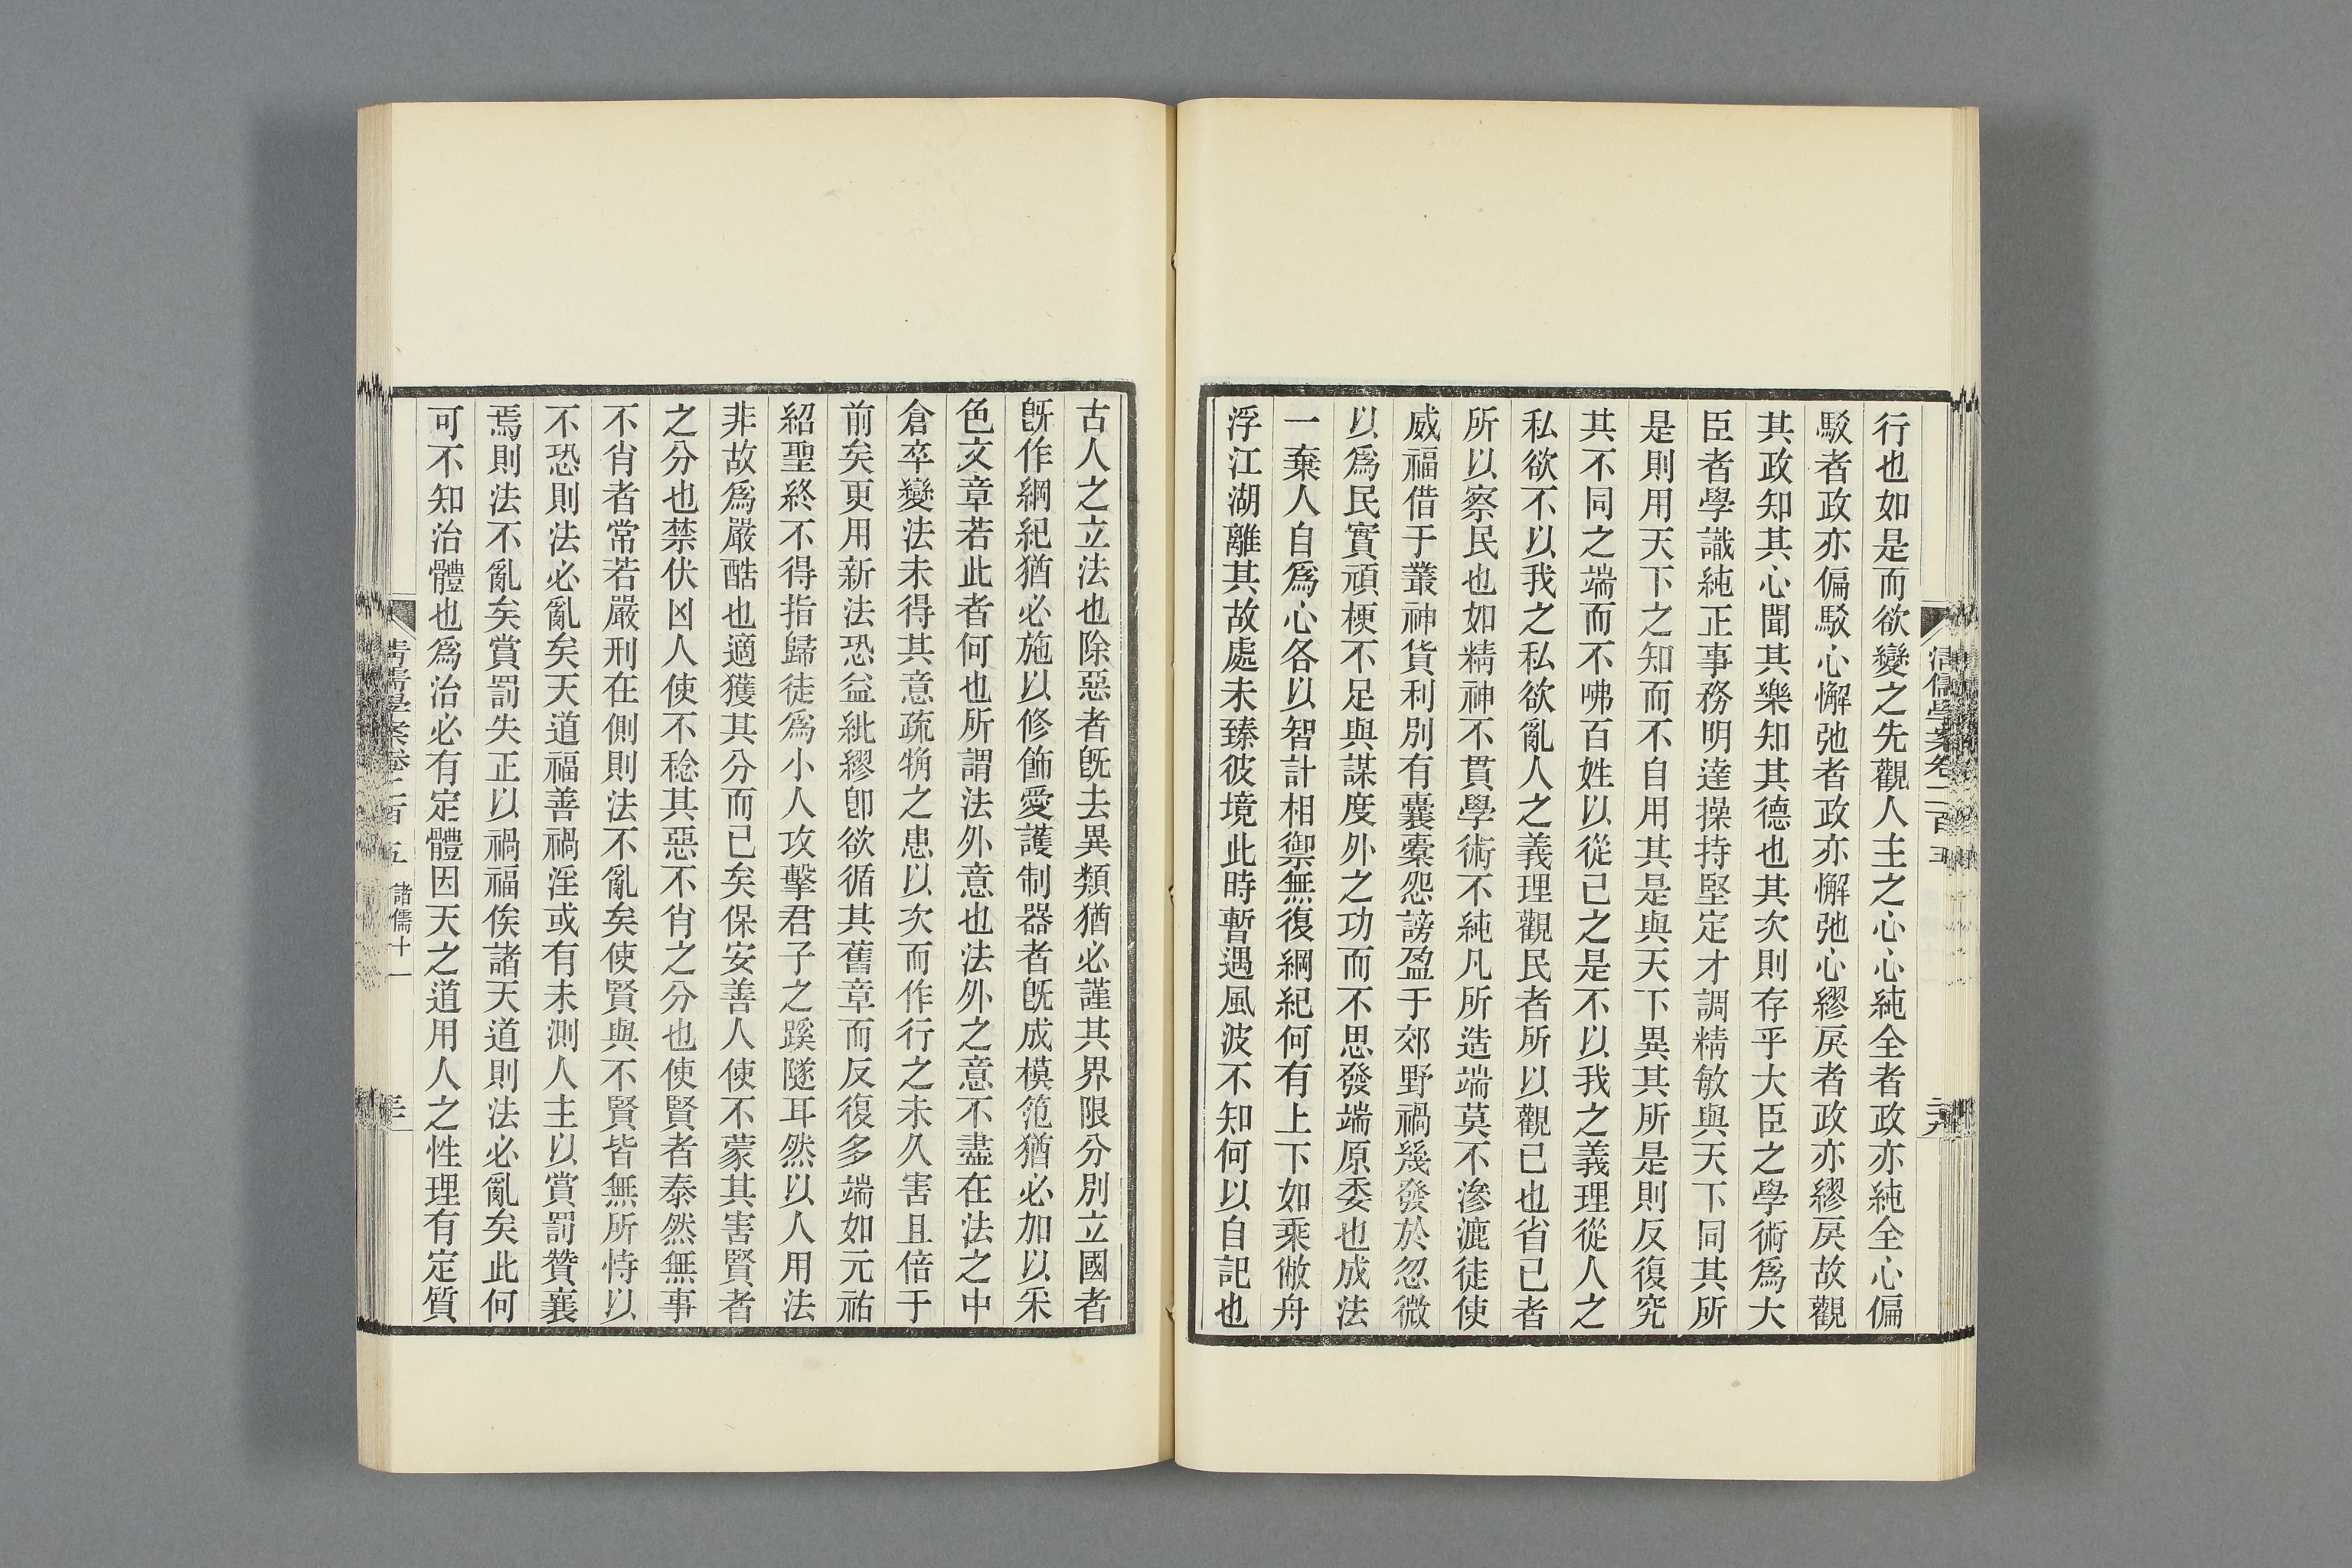 行也如是而欲變之先觀人主之心心純全者政亦純全心偏
駁者政亦偏駁心懈弛者政亦懈弛心繆戾者政亦繆戾故觀
其政知其心聞其樂知其德也其次則存乎大臣之學術爲大
臣者學識純正事務明達操持堅定才調精敏與天下同其所
是則用天下之知而不自用其是與天下異其所是則反復究
其不同之端而不咈百姓以從己之是不以我之義理從人之
私欲不以我之私欲亂人之義理觀民者所以觀己也省己者
所以察民也如精神不貫學術不純凡所造端莫不滲漉徒使
威福借于叢神貨利別有囊橐怨謗盈于郊野禍幾發於忽微
以爲民實頑梗不足與謀度外之功而不思發端原委也成法
一棄人自爲心各以智計相禦無復綱紀何有上下如乘敝舟
浮江湖離其故處未臻彼境此時暫遇風波不知何以自記也
清儒學案卷二百五
二九
古人之立法也除惡者旣去異類猶必謹其界限分別立國者
旣作綱紀猶必施以修飾愛護制器者旣成模笵猶必加以采
色文章若此者何也所謂法外意也法外之意不盡在法之中
倉卒變法未得其意疏觕之患以次而作行之未久害且倍于
前矣更用新法恐益紕繆卽欲循其舊章而反復多端如元祐
紹聖終不得指歸徒爲小人攻擊君子之蹊隧耳然以人用法
非故爲嚴酷也適獲其分而已矣保安善人使不蒙其害賢者
之分也禁伏凶人使不稔其惡不肖之分也使賢者泰然無事
不肖者常若嚴刑在側則法不亂矣使賢與不賢皆無所恃以
不恐則法必亂矣天道福善禍淫或有未測人主以賞罰贊襄
焉則法不亂矣賞罰失正以禍福俟諸天道則法必亂矣此何
可不知治體也爲治必有定體因天之道用人之性理有定質
清儒學案卷二百五 諸儒十一
三